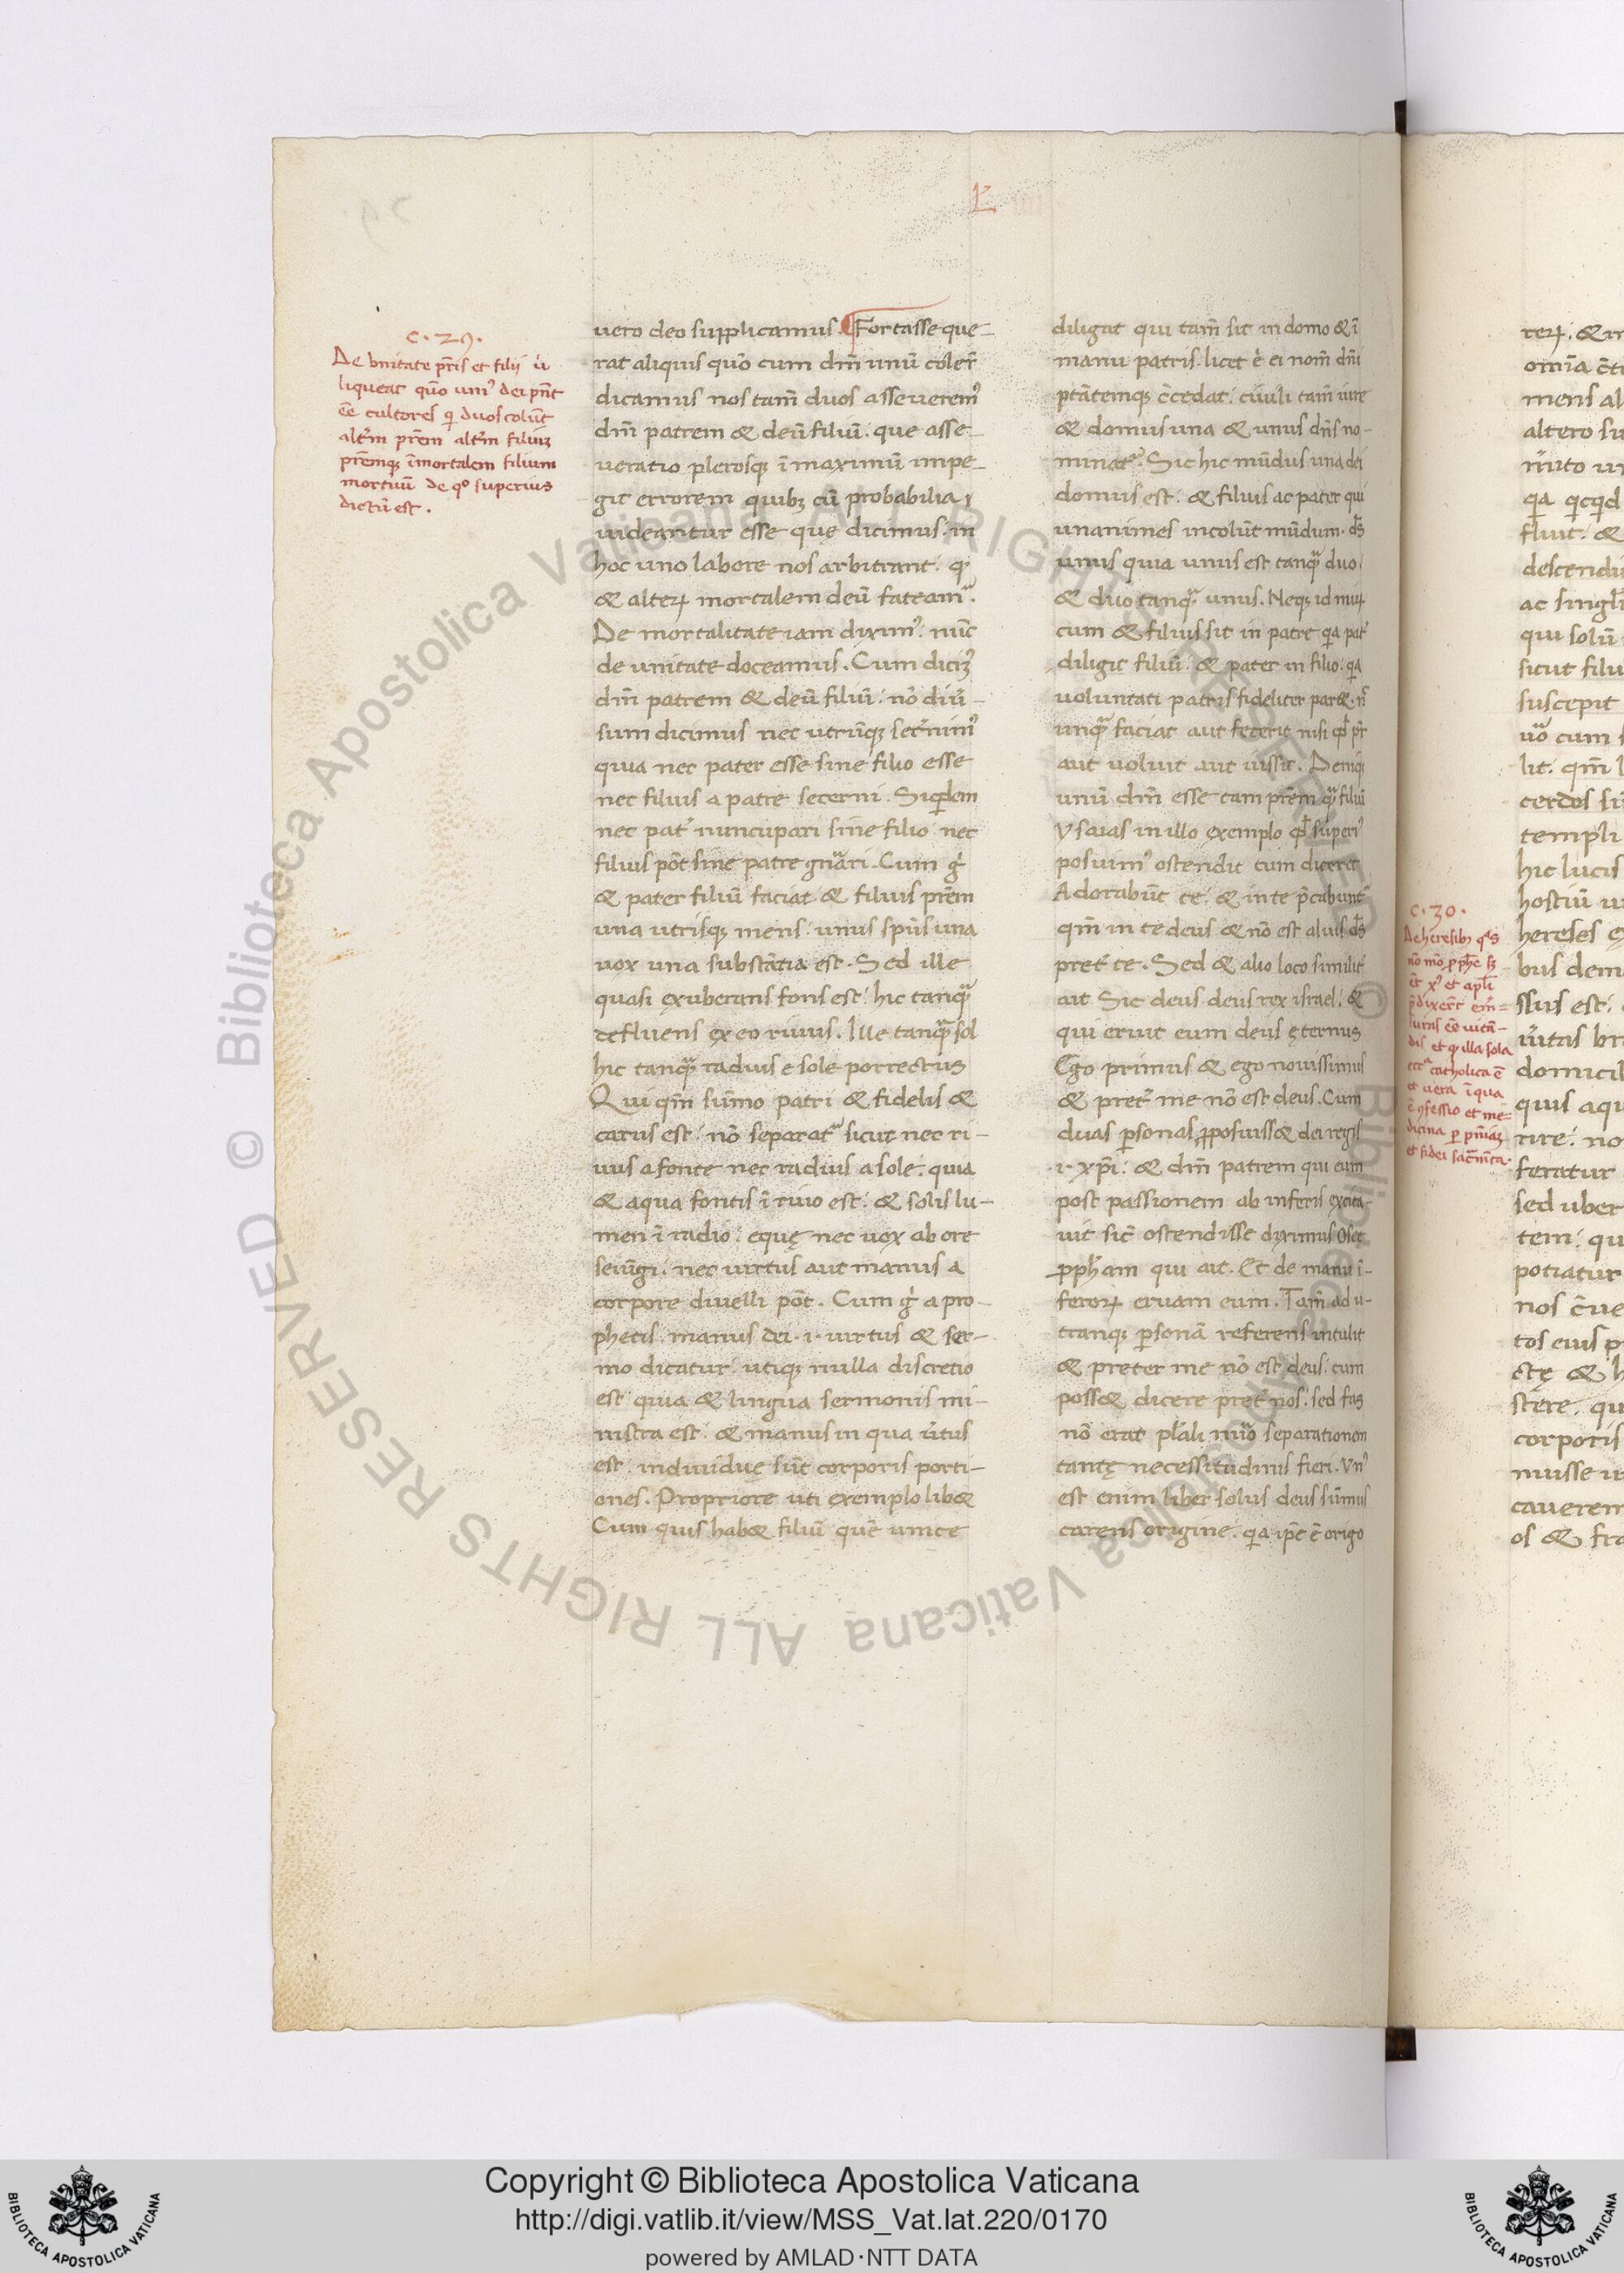 L
c. 29.
De vnitate pr̄is et filij ỉi
liqueat quo͞ uni⁹ dei pn̄t
ēē cultores qͥ duos colūt
altm̄ prēm altm̄ filiuꝫ
prēmqꝫ īmortalem filium
mortuū de qͦ superius
dictū est.
uero deo supplicamus. Fortasse que-
rat aliquis quō cum dm̄ unū coler̄
dicamus nos tam̄ duos asseuerem⁹
dm̄ patrem & deū filiū. que asse-
ueratio plerosqꝫ ī maximū impe-
git errorem quibꝫ cū probabilia
uideantur esse que dicimus. in
hoc uno labore nos arbitrant. ꝙ
& alteꝝ mortalem deū fateamᷓ.
De mortalitate iam diximꝰ. nūc
de unitate doceamus. Cum diciꝰ
dm̄ patrem & deū filiū. nō diū-
sum dicimus nec utrūqꝫ sec̄nimꝰ
quia nec pater esse sine filio esse
nec filius a patre secerni. Siqͥdem
nec pat̄ nuncupari sine filio nec
filius pōt sine patre gnāri. Cum g̊
& pater filiū faciat & filius prēm
una utrisqꝫ mens unus spūs una
uox una substātia est. Sed ille
quasi exuberans fons est. hic tanqᷓ
defluens ex eo riuus. Ille tanqᷓ sol
hic tanqᷓ radius e sole porrectus
Qui qm̄ sūmo patri & fidelis &
carus est. nō separatᷓ sicut nec ri-
uus a fonte nec radius a sole. quia
& aqua fontis ī riuo est. & solis lu-
men ī radio. equę nec uox ab ore
seiūgi. nec uirtus aut manus a
corpore diuelli pōt. Cum g̊ a pro-
phetis manus dei .i. uirtus & ser-
mo dicatur. utiqꝫ nulla discretio
est quia & lingua sermonis mi-
nistra est. & manus in qua ūtus
est indiuiduę sūt corporis porti-
ones. Propriore uti exemplo lib&
Cum quis hab& filiū quē unice
diligat qui tam̄ sit in domo & ī
manu patris. licet ē ei nom̄ dnī
ptātemqꝫ c̄cedat. ciuili tam̄ iure
& domus una & unus dn̄s no-
minatᷓ. Sic hic mūdus una dei
domus est. & filius ac pater qui
unanimes incolūt mūdum. ds̄
unus quia unus est tanqᷓ duo
& duo tanqᷓ unus. Neqꝫ id miꝝ
cum & filius sit in patre qͣ pat̄
diligit filiū. & pater in filio. qͣ
uoluntati patris fideliter par&. n̄
unqᷓ faciat aut fecerit nisi qd̄ pr̄
aut uoluit aut iussit. Deniqꝫ
unū dm̄ esse tam prēm qᷓ filiū
Ysaias in illo exemplo qd̄ superiꝰ
posuimꝰ ostendit cum dicerit
Adorabūt te. & in te p̄cabuntᷓ
qm̄ in te deus & nō est alius ds̄
pret̄ te. Sed & alio loco similit̄
ait Sic deus deus rex israel. &
qui eruit eum deus ęternus
Ego primus & ego nouissimus
& pret̄ me nō est deus. Cum
duas ꝑsonas ꝓposuiss& dei regis
.i. xpī. & dm̄ patrem qui eum
post passionem ab inferis excita-
uit sic̄ ostendisse diximus Osee
ꝓph̄am qui ait. Et de manu ī-
feroꝝ eruam eum. Tam̄ ad u-
tranqꝫ ꝑsonā referens intulit
& preter me nō est deus. cum
poss& dicere pret̄ nos. sed fas
nō erat plᷓali nūo separationem
tantę necessitudinis fieri. Vnꝰ
est enim liber solus deus sūmus
carens origine. qͣ ip̄e ē origo
c. 30.
De heresibꝫ qᷓs
nō mō ꝓphē sꝫ
et xꝰ et apl̄i
p̄dixert̄
dis et ꝙ illa sola
catholica ē
et uera ī qua
ē ꝯfessio et me-
dicina ꝑ pn̄iaꝫ
et fidei sacm̄ta.
reꝝ. & i
omīa c̄ti
mens al
altero su
qͣ qͥcqͥd
fluit. &
descendu
ac singl̄
qui solū
sicut filu
suscepit
uō cum
lit. qm̄ l
cerdos si
templi
hic lucis
hostiū u
hereses
bus dem
ssus est.
ūitas br
domicil
quis aqu
rire. no
feratur
sed uber
tem. qu
potiatur
nos c̄ue
tos eius p
ctę & h
stere. qu
corporis
nuisse u
cauerem
os & fra
Copyright © Biblioteca Apostolica Vaticana
http://digi.vatlib.it/view/MSS_Vat.lat.220/0170
powered by AMLAD·NTT DATA
BIBLIOTECA APOSTOLICA VATICANA
BIBLIOTECA APOSTOLICA VATICANA
© Biblioteca Apostolica Vaticana ALL RIGHTS RESERVED © Biblioteca Apostolica Vaticana ALL RIGHTS RESERVED